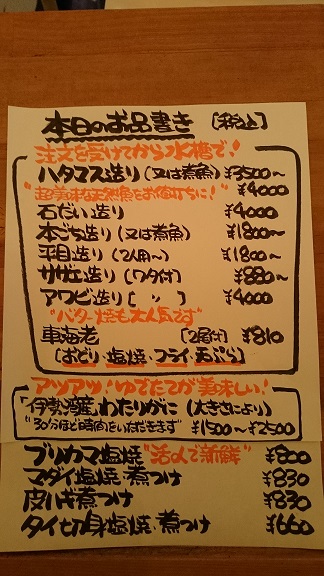 本日のお品書き [税込]
注文を受けてから水槽で!
ハタマス造り(又は煮魚)¥3500~
"超美味な天然魚をお値打ちに!" ¥4000
石だい造り ¥4000
本こち造り(又は煮魚) ¥1800~
平目造り(2人用~) ¥1800~
サザエ造り(ワタ付) ¥880~
アワビ造り[ 〃 ] ¥4000
"バター焼も大人気です"
車海老 [2尾付] ¥810
[おどり・塩焼・フライ・天ぷら]
アツアツ!ゆでたてが美味しい!
「伊勢湾産」わたりがに(大きさにより)
"30分ほど時間をいただきます" ¥1500~¥2500
ブリカマ塩焼"活〆で新鮮" ¥800
マダイ塩焼・煮つけ ¥830
皮ハギ煮つけ ¥830
タイ切身塩焼・煮つけ ¥660